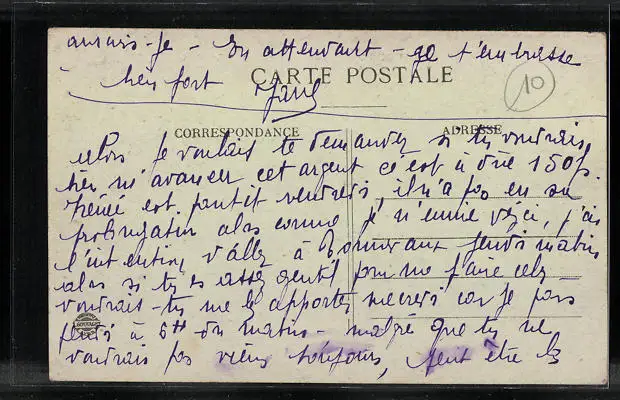 aurais-je - En attendant - je t'embrasse
bien fort
CARTE POSTALE
10
CORRESPONDANCE
ADRESSE
alors je voulais te demander si tu voudrais
bien m'avancer cet argent c'est à dire 150f.
René est parti vendredi, il n'a pas eu sa
prolongation alors comme je m'ennuie ici, j'ai
l'intention d'aller à jeudi matin,
alors si tu es assez gentil pour me faire cela
voudrais-tu me les apporter mercredi car je pars
jeudi à 5h du matin - malgré que tu ne
voudrais pas venir toujours, peut être les